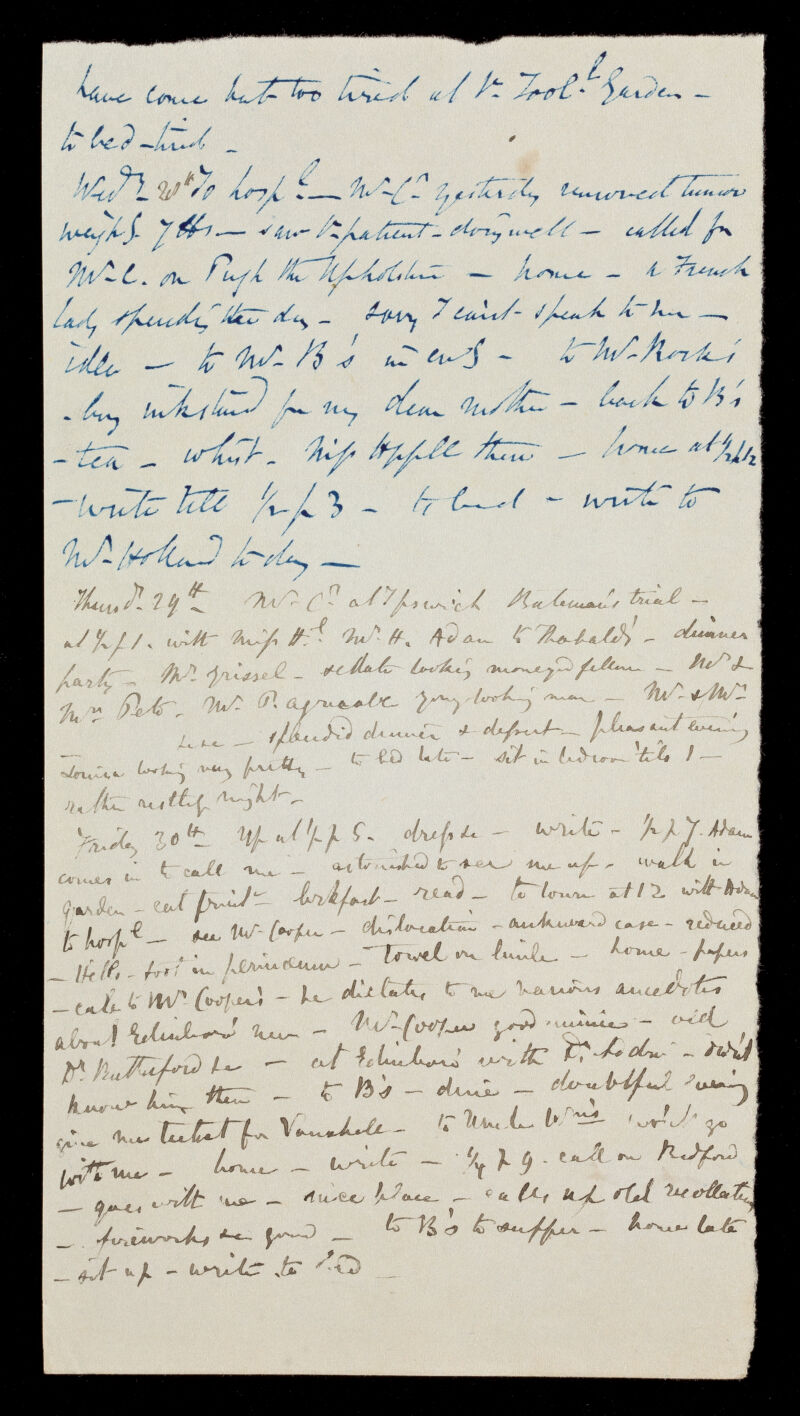 have come but too tired at ye Zool.l Garden –
to bed – tired –
Wed.y 28th To hosp.l — Mr C.r yesterday removed tumor
weigh.g 7 lbs — saw ye patient – doing well – called for
Mr C. on Pugh the Upholster – home – a French
lady spending the day – sorry I can't speak to her –
idea — to Mr B's in ev.g – to Mr Rock's
– buy inkstand for my dear mother – back to B's
– tea – whist – Miss Appll there – home at ½ p 12
– write till ½ p 3 – to bed – write to
Mr Holland to day –
Thursd.y 29th Mr C.r at Ipswich Bateman's trial –
at ½ p 1. with Miss H.l Mr H. Adam to Thobald's – dinner
party – Mr Grissel – sedate looking moneyed fellow – Mr &
Mrs Peto – Mr P. agreeable young looking man – Mr & Mrs
&c &c – splendid dinner & dessert – pleasant evening
Louisa looking very pretty – to bed late – sit in bedroom 'till 1 –
rather restless night –
Friday 30th Up at ½ p 5. dress &c – write – ½ p 7. Adam
comes in to call me – astonished to see me up – walk in
garden – eat fruit – brkfast – read – to town at 12 with Adam
to hosp.l — see Mr Cooper – dislocation – awkward case – reduced
– foot in perinaeum – Towel on – home – papers
– call to Mr Cooper's – he dictates to me various anecdotes
about Edinboro' men – Mr Cooper good mimic – old
Dr Rutherford &c — at Edinboro' with Dr – didn't
know him then – to B's – dine – doubtful evening
give me ticket for Vauxhall – to Uncle Wm's wo'd go
with me – home – write – ¼ p 9. call on Redford
– goes with me – nice place – calls up old recollections
– fireworks &c good – to B's to supper – home late
– sit up – write to bed –